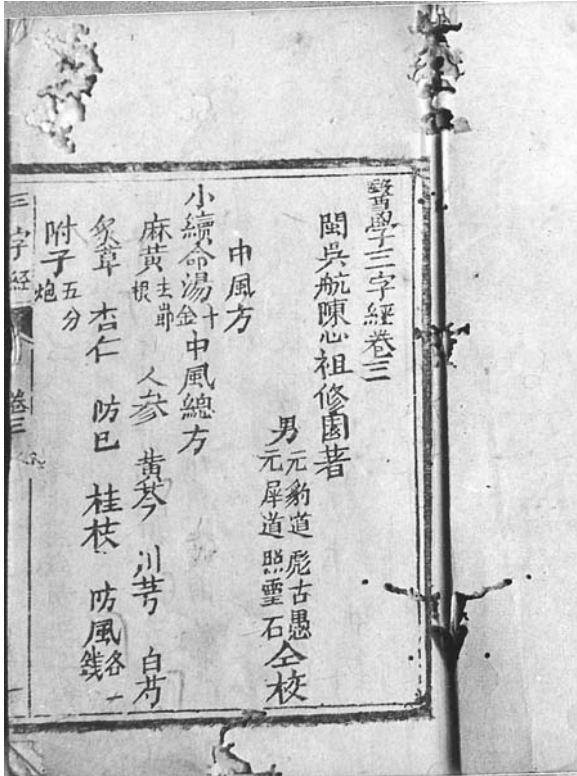 醫學三字經卷三
閩吳航陳心祖修園著
男元豹道彪古愚
元犀道照靈石仝校
中風方
小續命湯千金中風總方
麻黃去節根 人参 黄芩 川芎 白芍
炙草 杏仁 防已 桂枝 防風各一錢
附子五分炮
三字經 卷三